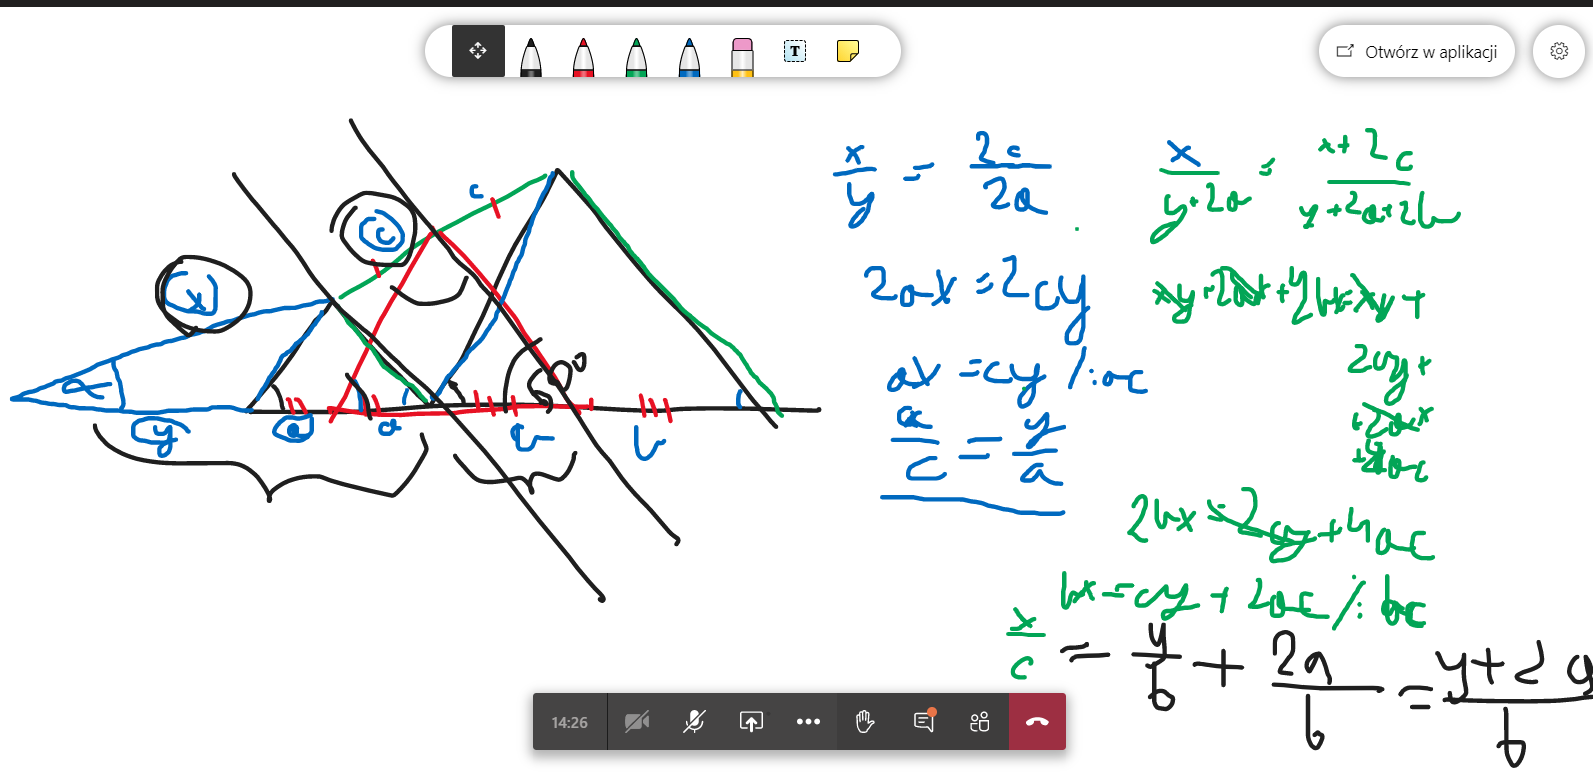 T
Otwórz w aplikacji
c
c
x
α
y
a
a
b
b
x/y = 2c/2a
2ax = 2cy
ax = cy /:ac
x/c = y/a
x/(y+2a) = (x+2c)/(y+2a+2b)
xy+2ax+2bx=xy+
2cy+
+2ax
+4ac
2bx=2cy+4ac
bx=cy+2ac/:bc
x/c = y/b + 2a/b = (y+2a)/b
14:26